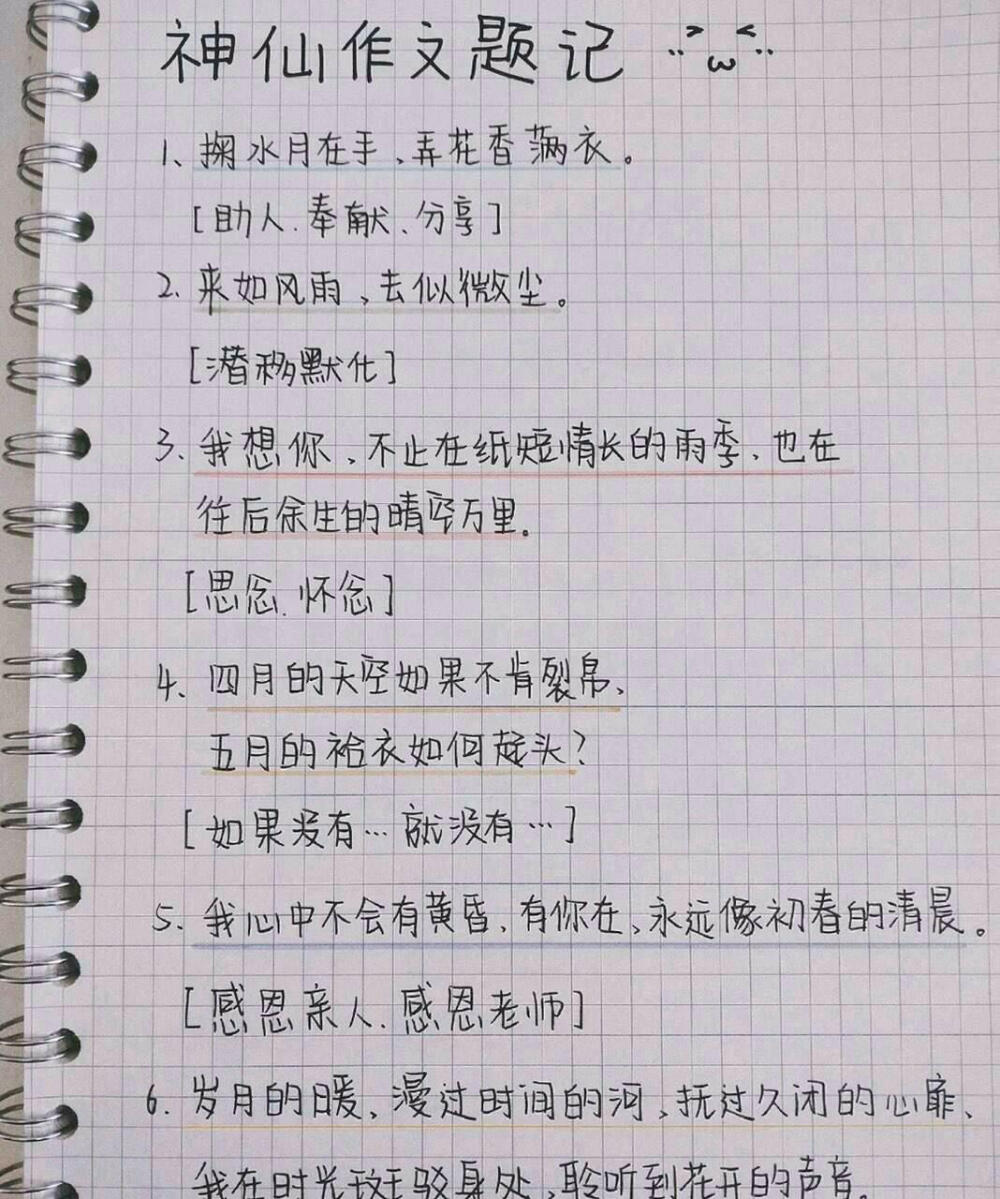 神仙作文题记
1、掬水月在手、弄花香满衣。
[助人、奉献、分享]
2、来如风雨、去似微尘。
[潜移默化]
3、我想你、不止在纸短情长的雨季、也在
往后余生的晴空万里。
[思念、怀念]
4、四月的天空如果不肯裂帛、
五月的袷衣如何起头?
[如果没有…就没有…]
5、我心中不会有黄昏、有你在、永远像初春的清晨。
[感恩亲人、感恩老师]
6、岁月的暖、漫过时间的河、抚过久闭的心扉、
我在时光斑驳身处、聆听到花开的声音。